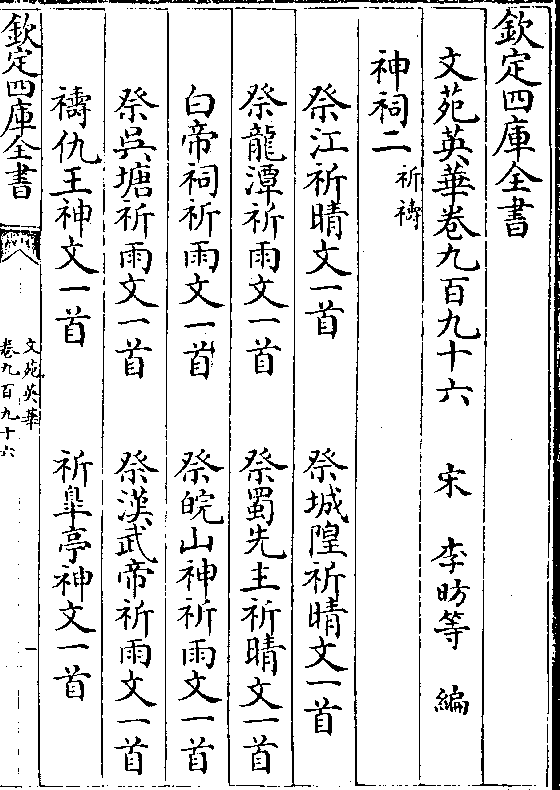 欽定四庫全書
文苑英華卷九百九十六 宋 李昉等 編
神祠二 祈禱
祭江祈晴文一首 祭城隍祈晴文一首
祭龍潭祈雨文一首 祭蜀先主祈晴文一首
白帝祠祈雨文一首 祭皖山神祈雨文一首
祭吳塘祈雨文一首 祭漢武帝祈雨文一首
禱仇王神文一首 祈臯亭神文一首
欽定四庫全書
文苑英華
卷九百九十六
一